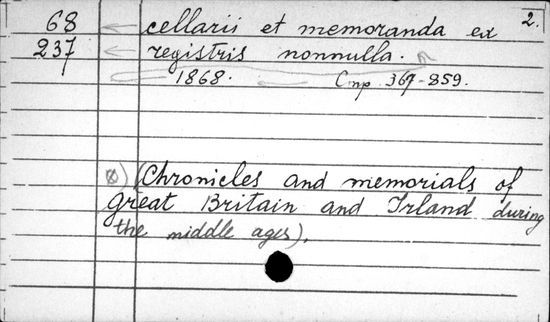 2.
68 cellarii et memoranda ex
237 registris nonnulla.
1868. Cmp 367-859.
8) (Chronicles and memorials of
great Britain and Irland during
the middle ages).